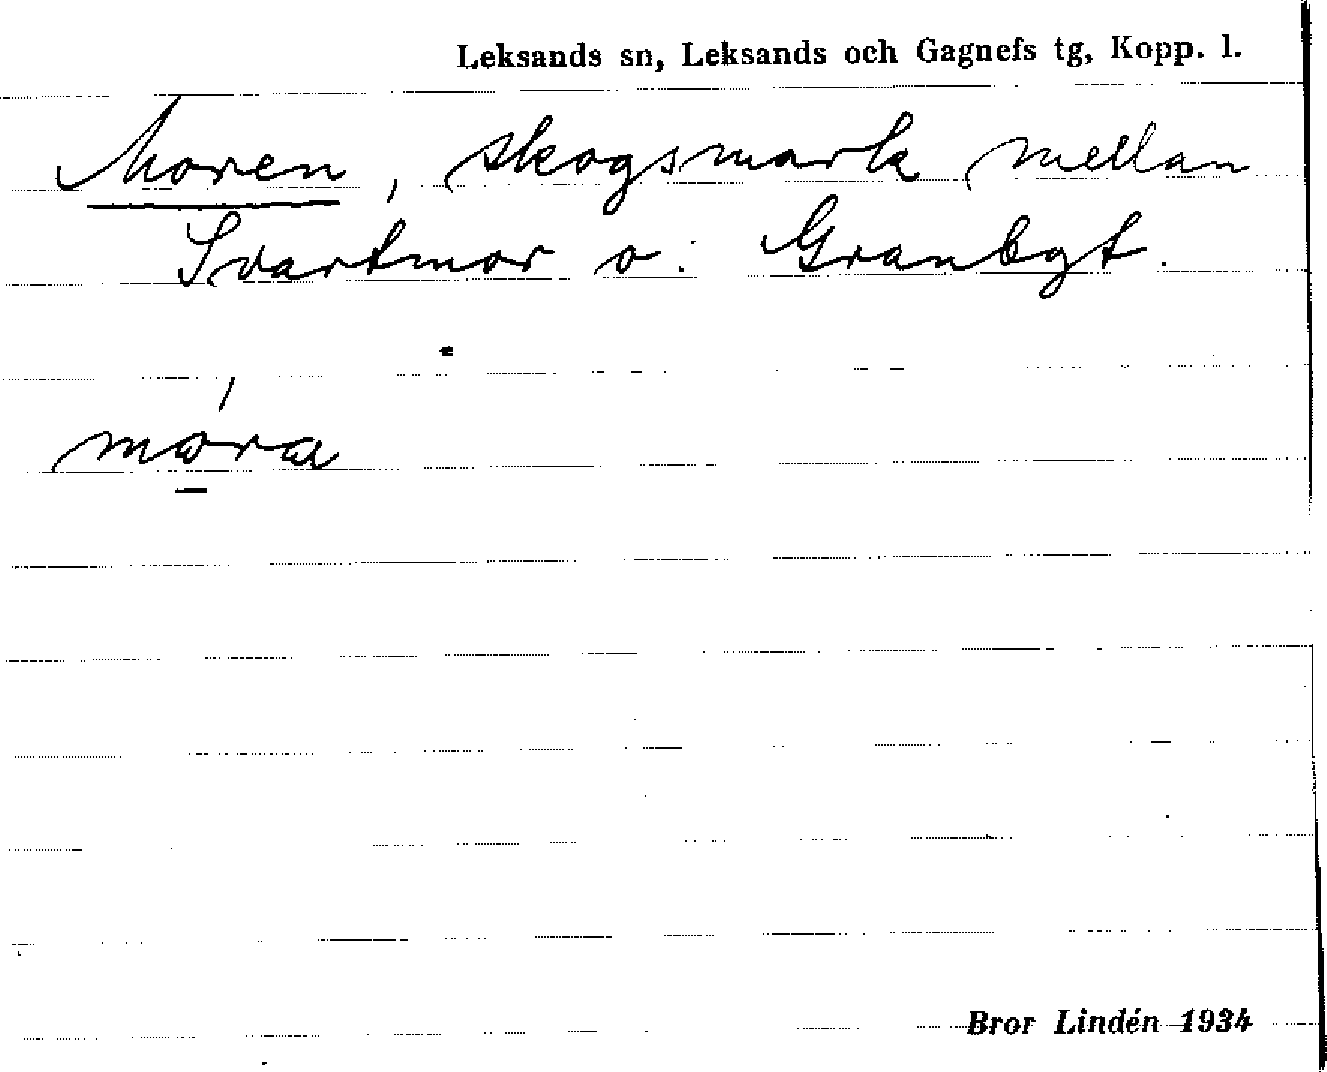 Leksands sn, Leksands och Gagnefs tg, Kopp. l.
Moren, skogsmark mellan
Svartmor o. Granbgt.
mora
Bror Lindén 1934